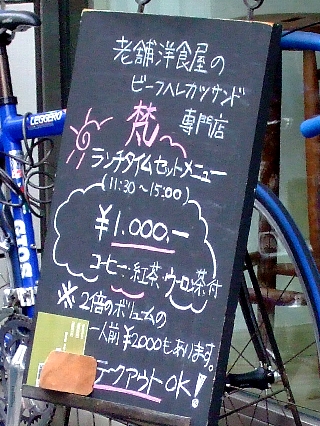 老舗洋食屋の
ビーフヘレカツサンド
梵 専門店
ランチタイムセットメニュー
(11:30〜15:00)
¥1.000,-
コーヒー・紅茶・ウーロン茶付
※2倍のボリュームの
一人前¥2000もあります。
テクアウトOK!
LEGGERO
GIOS